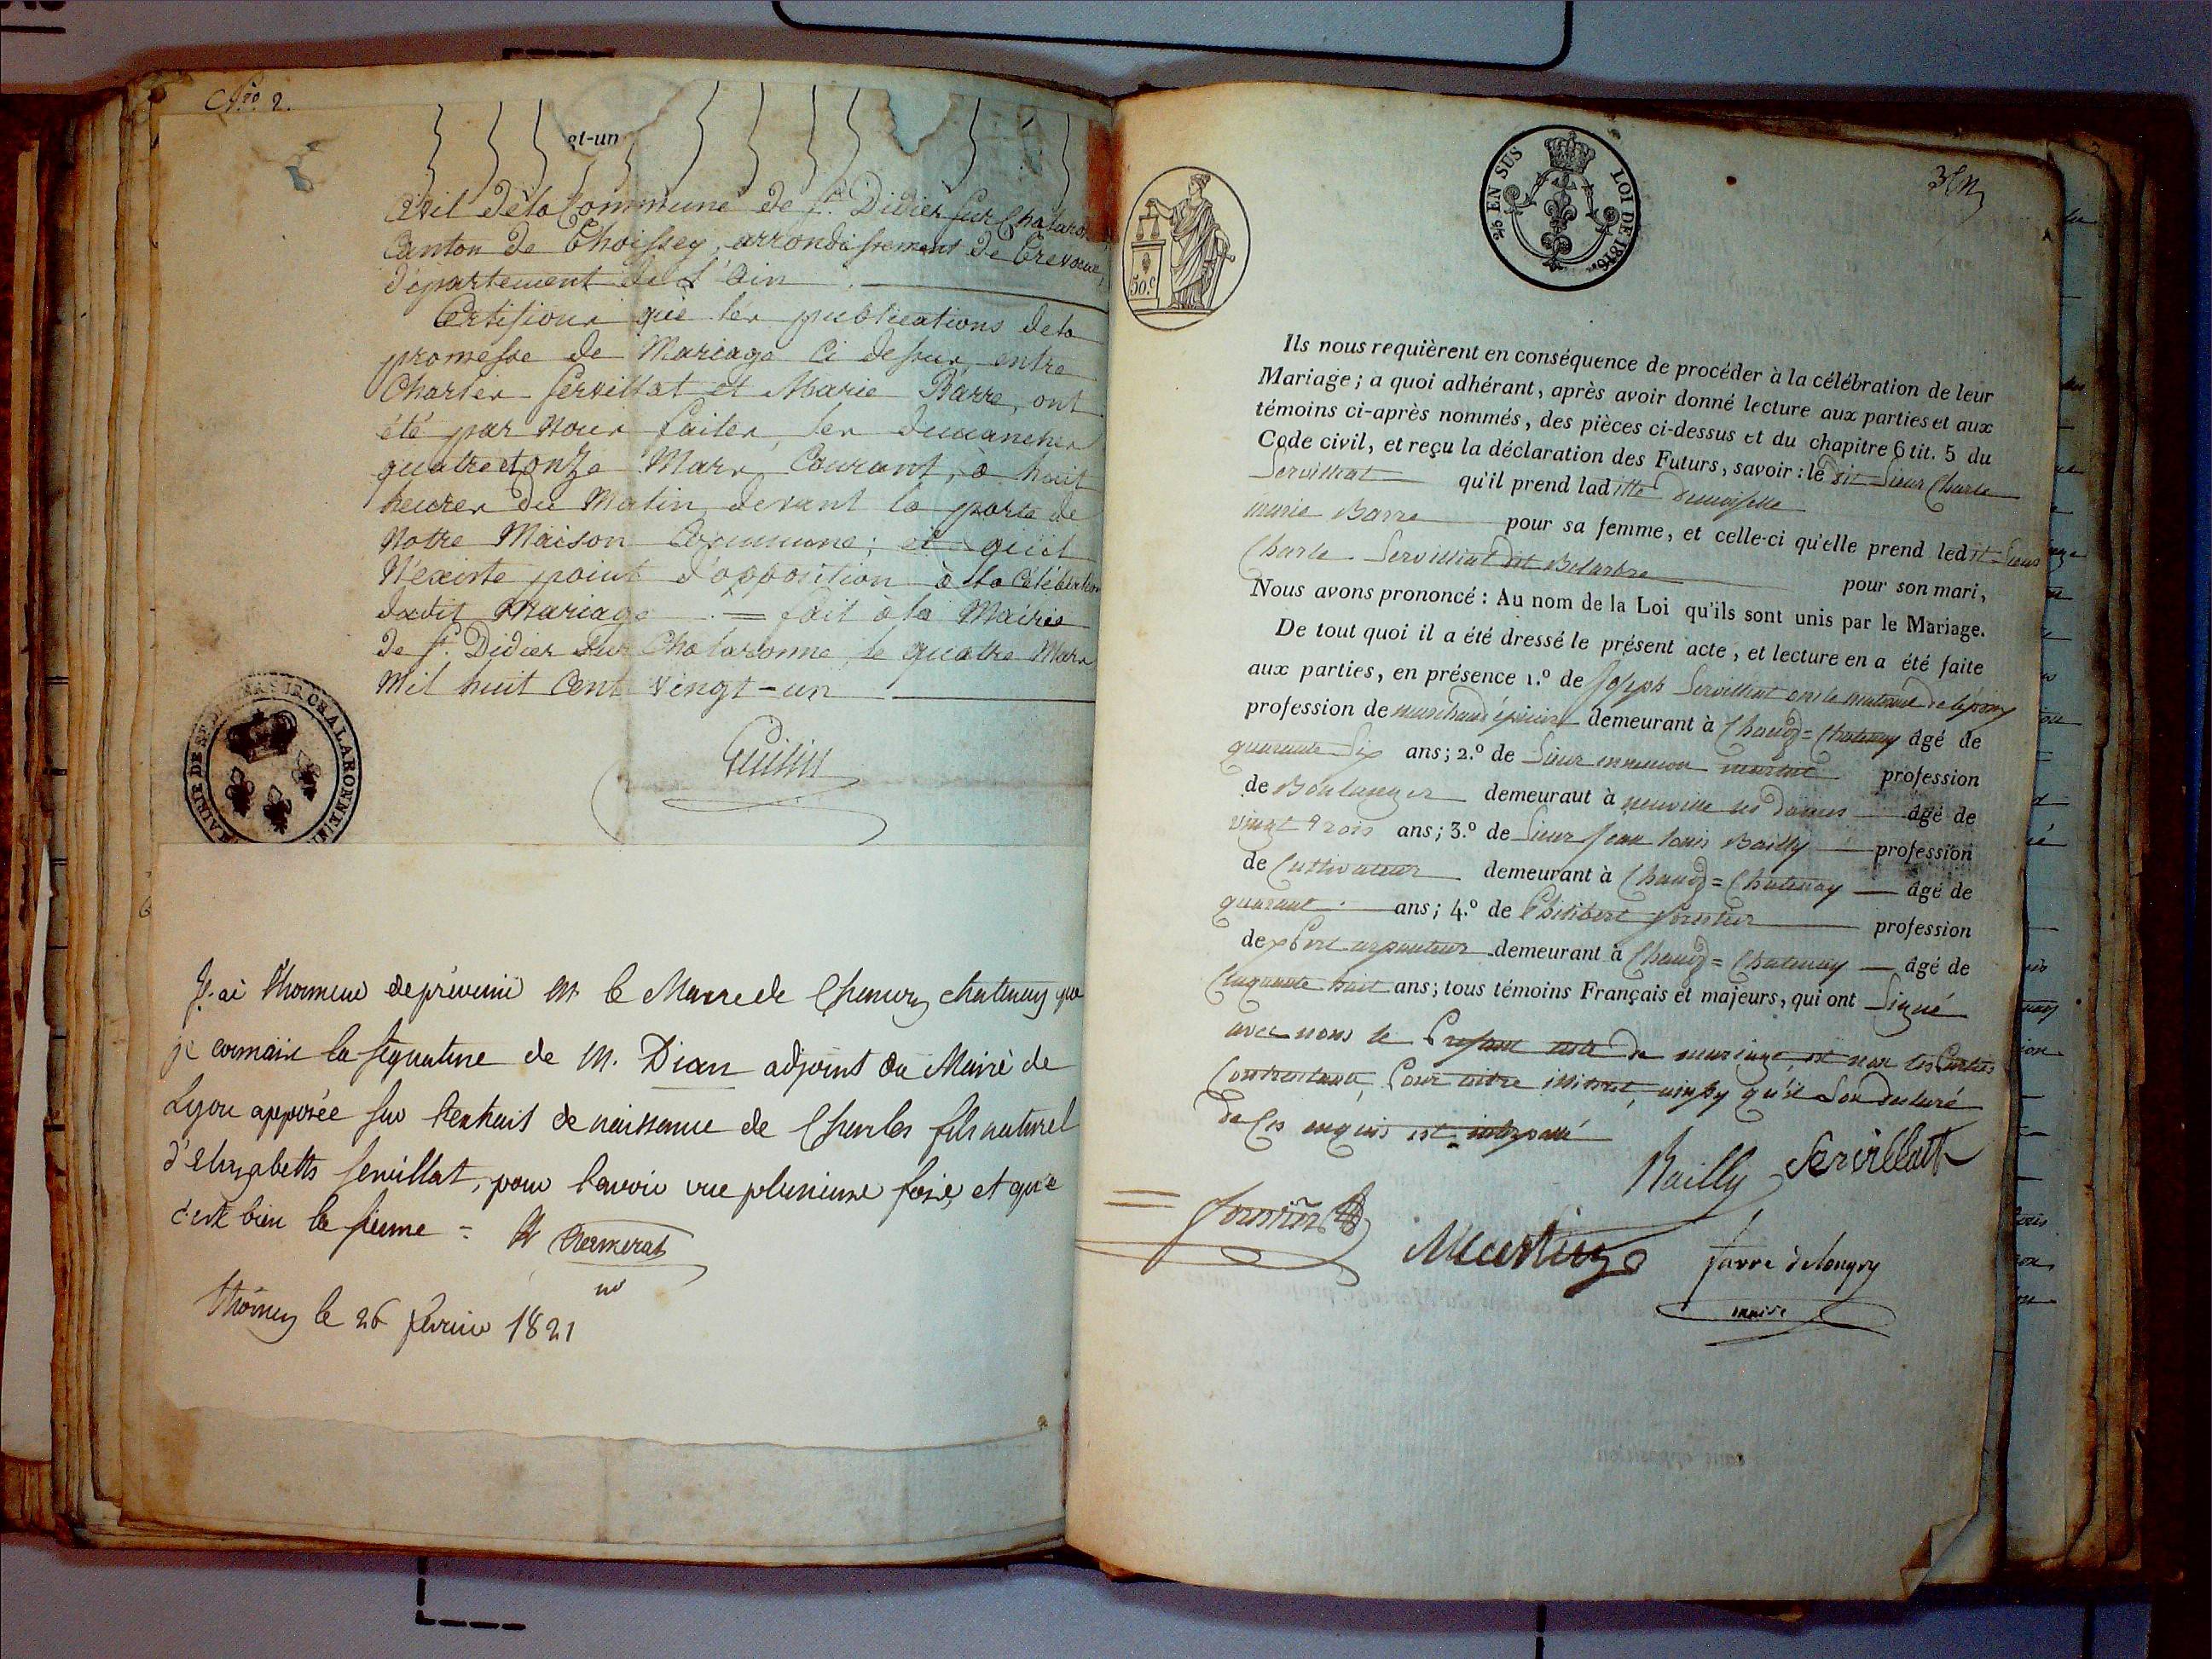 N.ro 2.
gt-un
Civil de la Commune de St. Didier sur Chalaronne
Canton de Thoissey, arrondissement de Trevoux,
département de l'Ain
Certifions que les publications de la
promesse de Mariage Ci dessus, entre
Charles Servillat et Marie Barre, ont
été par Nous faites, les dimanches
quatre et onze Mars Courant, à huit
heures du Matin, devant la porte de
Notre Maison Commune; et qu'il
N'existe point d'opposition à la Célébration
dudit Mariage . = fait à la Mairie
de St. Didier sur Chalaronne, le quatre Mars
Mil huit Cent vingt-un
MAIRIE DE ST DIDIER SUR CHALARONNE
J'ai l'honneur de prévenir M. le Maire de Chanoz chatenay que
je connais la signature de M. Dian adjoint du Mairie de
Lyon apposée sur l'extrait de naissance de Charles fils naturel
d'elizabeth servillat, pour l'avoir vue plusieurs fois, et que
c'est bien la sienne =
le 26 février 1821
50.c
25 EN SUS LOI DE 1816
Ils nous requièrent en conséquence de procéder à la célébration de leur
Mariage; a quoi adhérant, après avoir donné lecture aux parties et aux
témoins ci-après nommés, des pièces ci-dessus et du chapitre 6 tit. 5 du
Code civil, et reçu la déclaration des Futurs, savoir: le dit Sieur Charle
Servilliat qu'il prend laditte demoiselle
marie Barre pour sa femme, et celle-ci qu'elle prend ledit Sieur
Charle Servilliat dit pour son mari,
Nous avons prononcé: Au nom de la Loi qu'ils sont unis par le Mariage.
De tout quoi il a été dressé le présent acte, et lecture en a été faite
aux parties, en présence 1.º de Joseph Servilliat oncle maternel de l'époux
profession de marchand épicier demeurant à Chanoz = Chatenay âgé de
quarante six ans; 2.º de Sieur martin profession
de Boulanger demeuraut à neuville les Dames âgé de
vingt trois ans; 3.º de Sieur Jean louis Bailly profession
de Cultivateur demeurant à Chanoz = Chatenay âgé de
quarant ans; 4.º de Philibert forestier profession
de arpanteur demeurant à Chanoz = Chatenay âgé de
Cinquante huit ans; tous témoins Français et majeurs, qui ont Signé
avec nous le Present acte de mariage, et non les Parties
Contractants Pour aitre illitret, qu'il Son declaré
de Ces enquis
Bailly Servillatt
Martin
maire